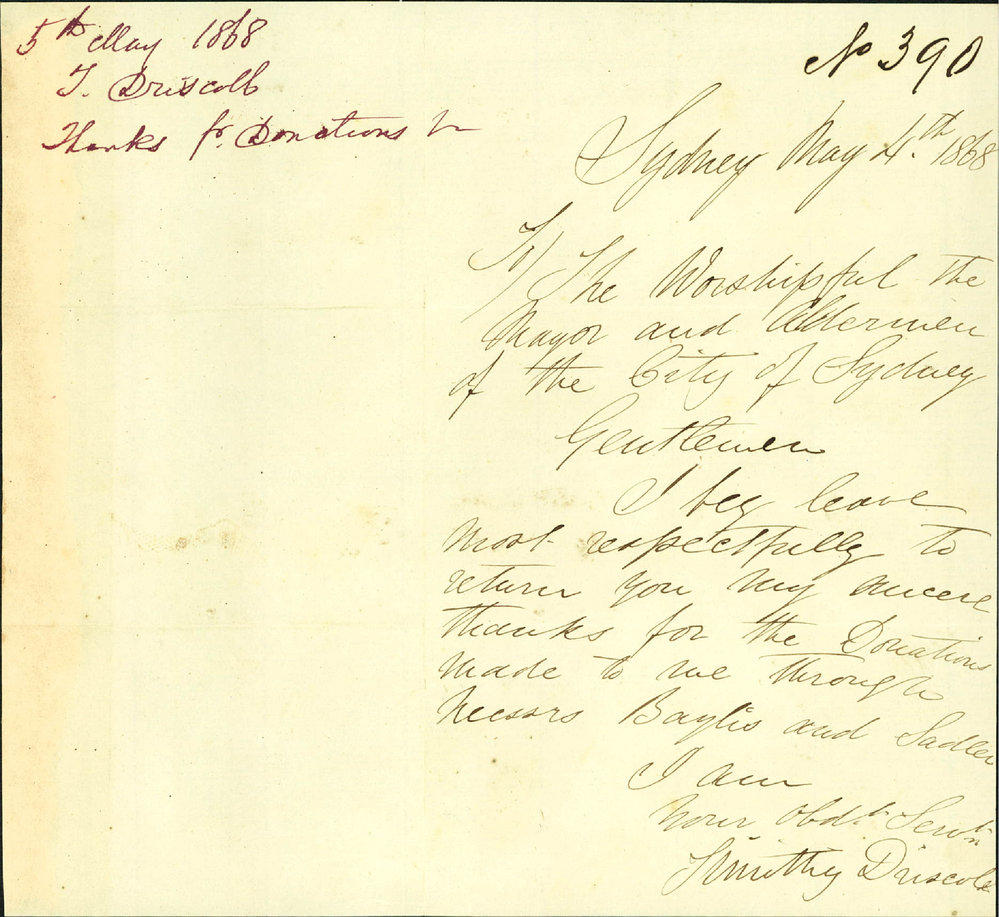 5th May 1868
T. Driscoll
Thanks for Donations
No 390
Sydney May 4.th 1868
To/ The Worshipful the
Mayor and Aldermen
of the City of Sydney
Gentlemen
I beg leave
most respectfully to
return you my sincere
thanks for the Donations
made to me through
Messrs Baylis and Sadler
I am
Your Obdt. Servt.
Timothy Driscoll